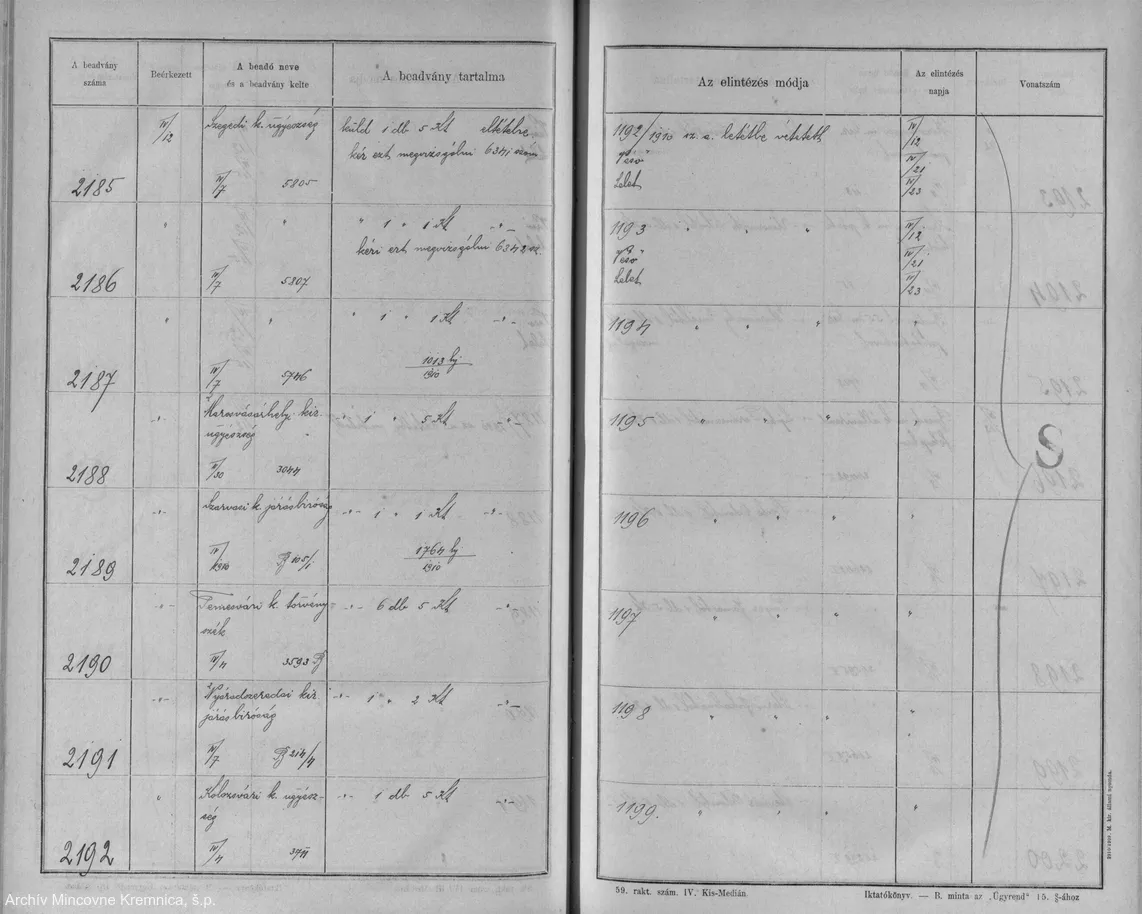 A beadvány száma
Beérkezett
A beadó neve és a beadvány kelte
A beadvány tartalma
Az elintézés módja
Az elintézés napja
Vonatszám
IV/12 Szegedi k. ügyészség küld 1 db 5 Kt eltételre 1192/1910 sz. a. letétbe vétetett IV/12
kér ezt megvizsgálni 6341 szám "Véső" IV/21
2185 IV/7 5805 Lelet IV/23
" " " 1 " 1 Kt -"- 1193 " " " IV/12
kéri ezt megvizsgálni 6342 sz. "Véső" IV/21
2186 IV/7 5807 Lelet IV/23
" " " 1 " 1 Kt -"- 1194 " " " "
2187 IV/7 5746 1013 bj/1910
-"- Marosvásárhelyi kir. -"- 1 " 5 Kt -"- 1195 " " " "
ügyészség
2188 3044
-"- Szarvasi k. járásbíróság -"- 1 " 1 Kt -"- 1196 " " " "
2189 IV/1910 B 105/1 1764 bj/1910
-"- Temesvári k. törvény- -"- 6 db 5 Kt -"- 1197 " " " "
szék
2190 IV/4 3593 B
-"- Nyáradszeredai kir. -"- 1 " 2 Kt -"- 1198 " " " "
járásbíróság
2191 IV/7 B 214/4
" Kolozsvári k. ügyész- -"- 1 db 5 Kt -"- 1199. " " " "
ség
2192 IV/4
S
59. rakt. szám. IV. Kis-Medián.
Iktatókönyv. — B. minta az „Ügyrend" 15. §-ához
M. kir. állami nyomda.
Archív Mincovne Kremnica, š.p.